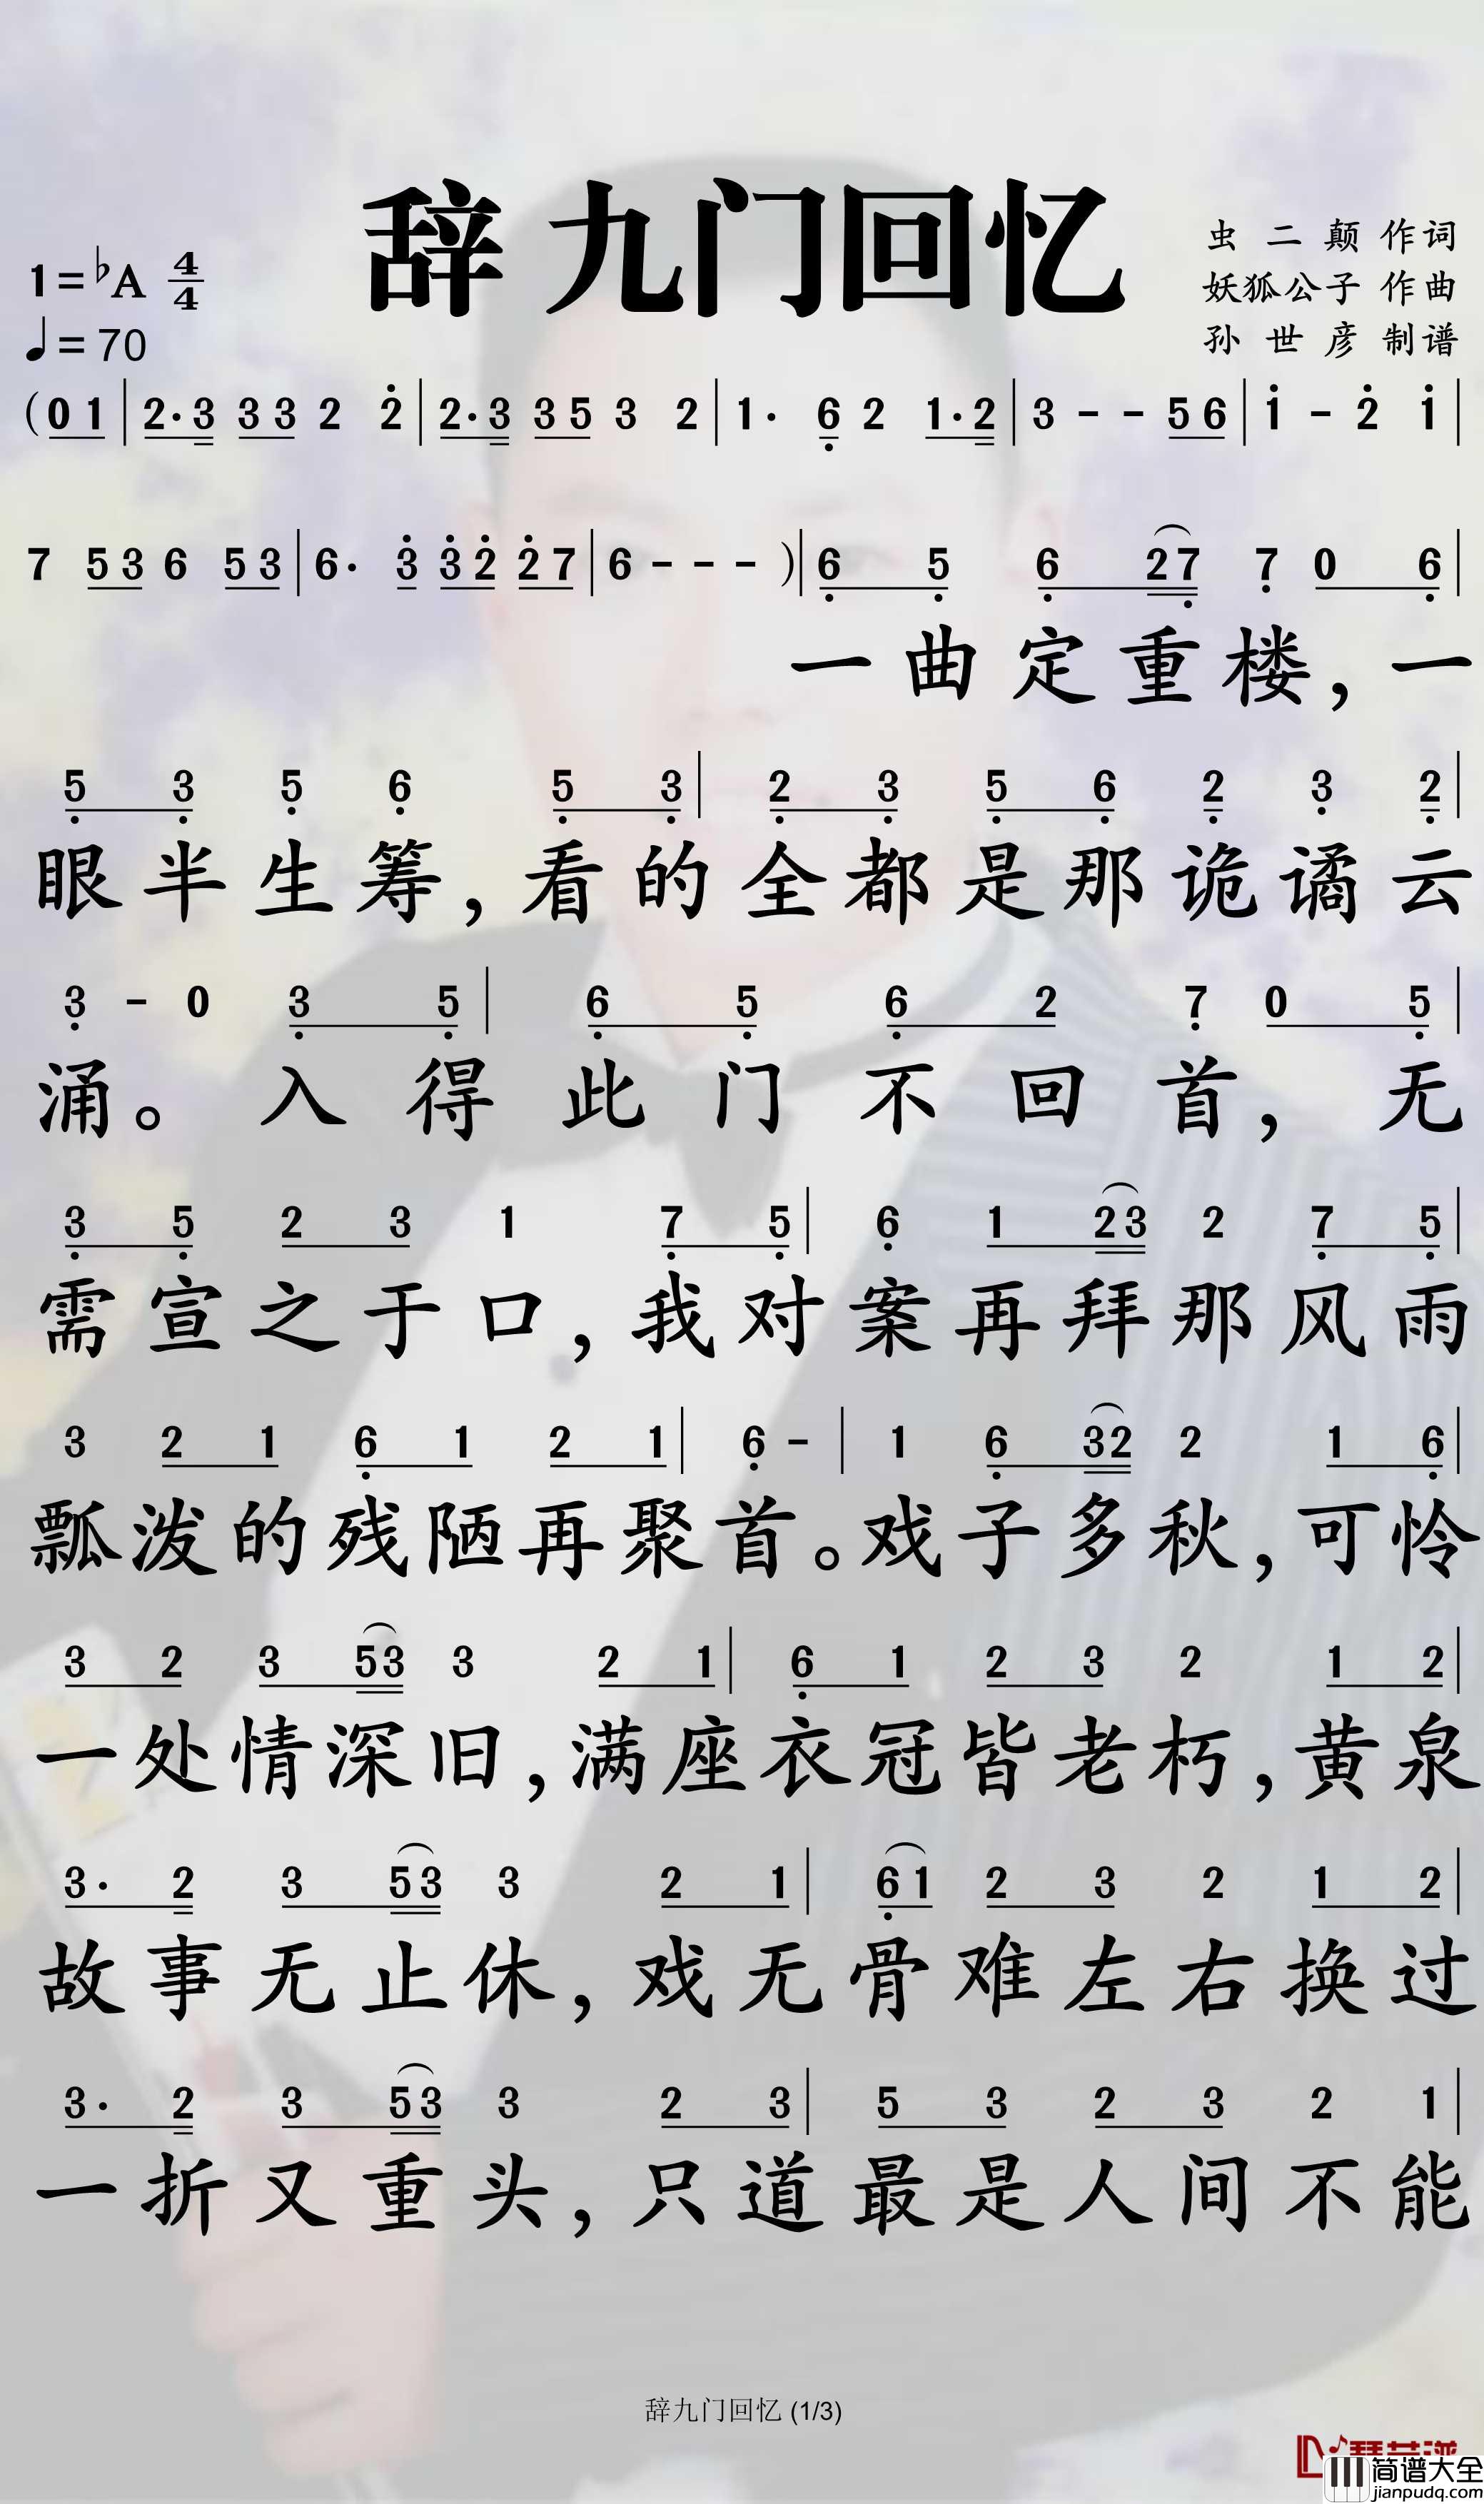 辞九门回忆
1=♭A 4/4
♩=70
虫二颠 作词
妖狐公子 作曲
孙世彦 制谱
(0 1 | 2· 3 3 3 2 2̇ | 2· 3 3 5 3 2 | 1· 6̣ 2 1· 2 | 3 - - 5 6 | 1̇ - 2̇ 1̇ |
7 5 3 6 5 3 | 6· 3̇ 3̇ 2̇ 2̇ 7 | 6 - - - ) | 6̣ 5̣ 6̣ 2 7̣ 7̣ 0 6̣ |
一曲定重楼,一
5̣ 3̣ 5̣ 6̣ 5̣ 3̣ | 2̣ 3̣ 5̣ 6̣ 2̣ 3̣ 2̣ |
眼半生筹,看的全都是那诡谲云
3̣ - 0 3̣ 5̣ | 6̣ 5̣ 6̣ 2 7̣ 0 5̣ |
涌。入得此门不回首,无
3̣ 5̣ 2 3 1 7̣ 5̣ | 6̣ 1 2 3 2 7̣ 5̣ |
需宣之于口,我对案再拜那风雨
3 2 1 6̣ 1 2 1 | 6̣ - | 1 6̣ 3 2 2 1 6̣ |
瓢泼的残陋再聚首。戏子多秋,可怜
3 2 3 5 3 3 2 1 | 6̣ 1 2 3 2 1 2 |
一处情深旧,满座衣冠皆老朽,黄泉
3· 2 3 5 3 3 2 1 | 6̣ 1 2 3 2 1 2 |
故事无止休,戏无骨难左右换过
3· 2 3 5 3 3 2 3 | 5 3 2 3 2 1 |
一折又重头,只道最是人间不能
辞九门回忆 (1/3)
简谱大全
jianpudq.com